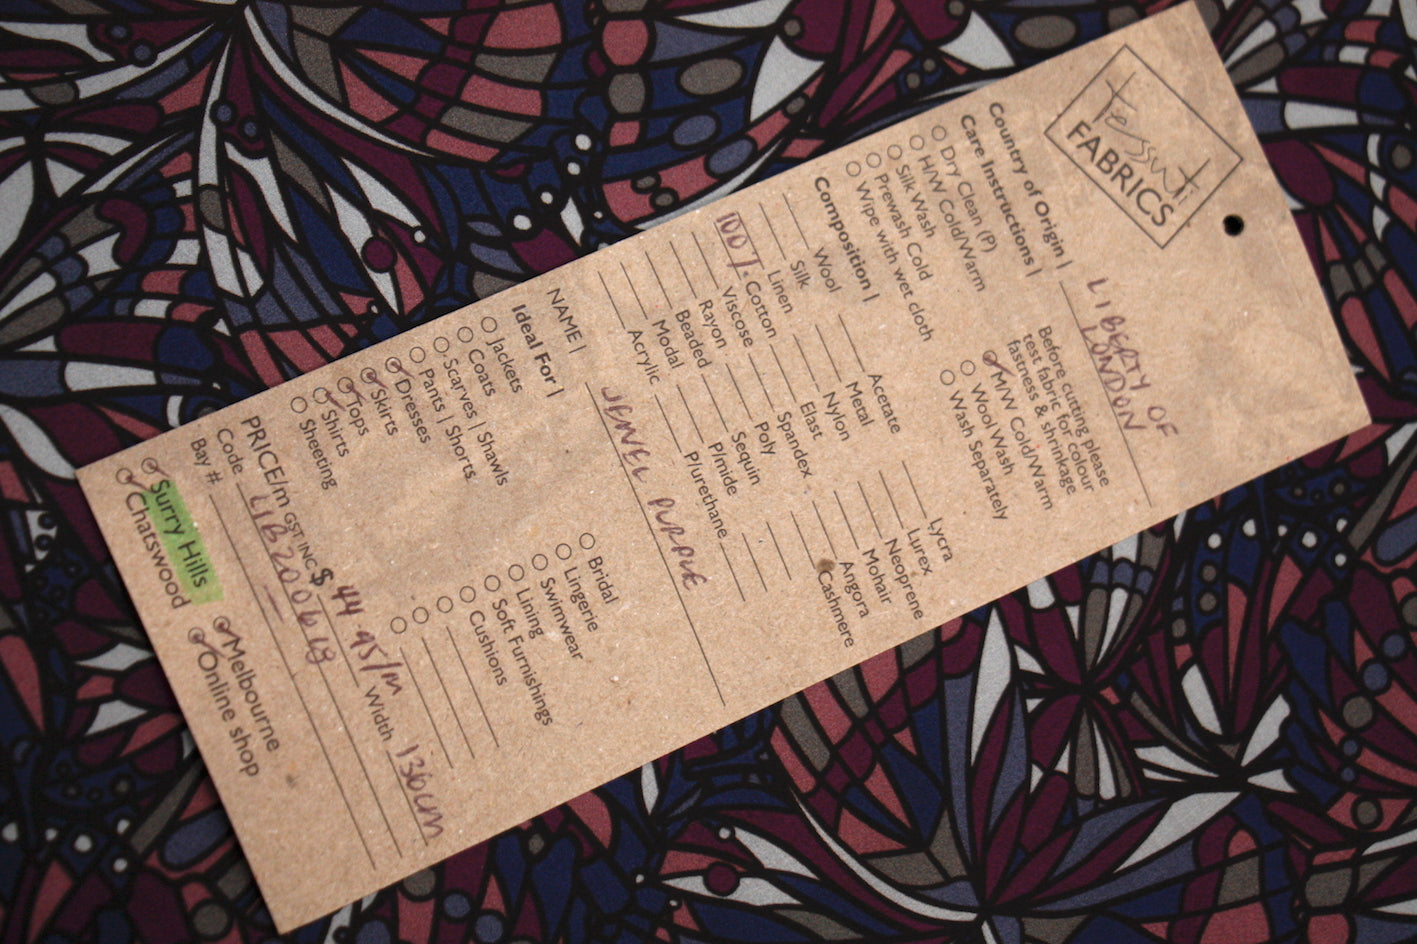 Tessuti
FABRICS
Country of Origin | LIBERTY OF
LONDON
Care Instructions |
Before cutting please
test fabric for colour
fastness & shrinkage
Dry Clean (P)
H/W Cold/Warm
Silk Wash
Prewash Cold
Wipe with wet cloth
M/W Cold/Warm
Wool Wash
Wash Separately
Composition |
Wool
Silk
Linen
100% Cotton
Viscose
Rayon
Beaded
Modal
Acrylic
Acetate
Metal
Nylon
Elast
Spandex
Poly
Sequin
P/mide
P/urethane
Lycra
Lurex
Neoprene
Mohair
Angora
Cashmere
NAME | JEWEL PURPLE
Ideal For |
Jackets
Coats
Scarves | Shawls
Pants | Shorts
Dresses
Skirts
Tops
Shirts
Sheeting
Bridal
Lingerie
Swimwear
Lining
Soft Furnishings
Cushions
PRICE/m GST INC $ 44.95/m Width 136cm
Code LIB200643
Bay #
Surry Hills
Chatswood
Melbourne
Online shop